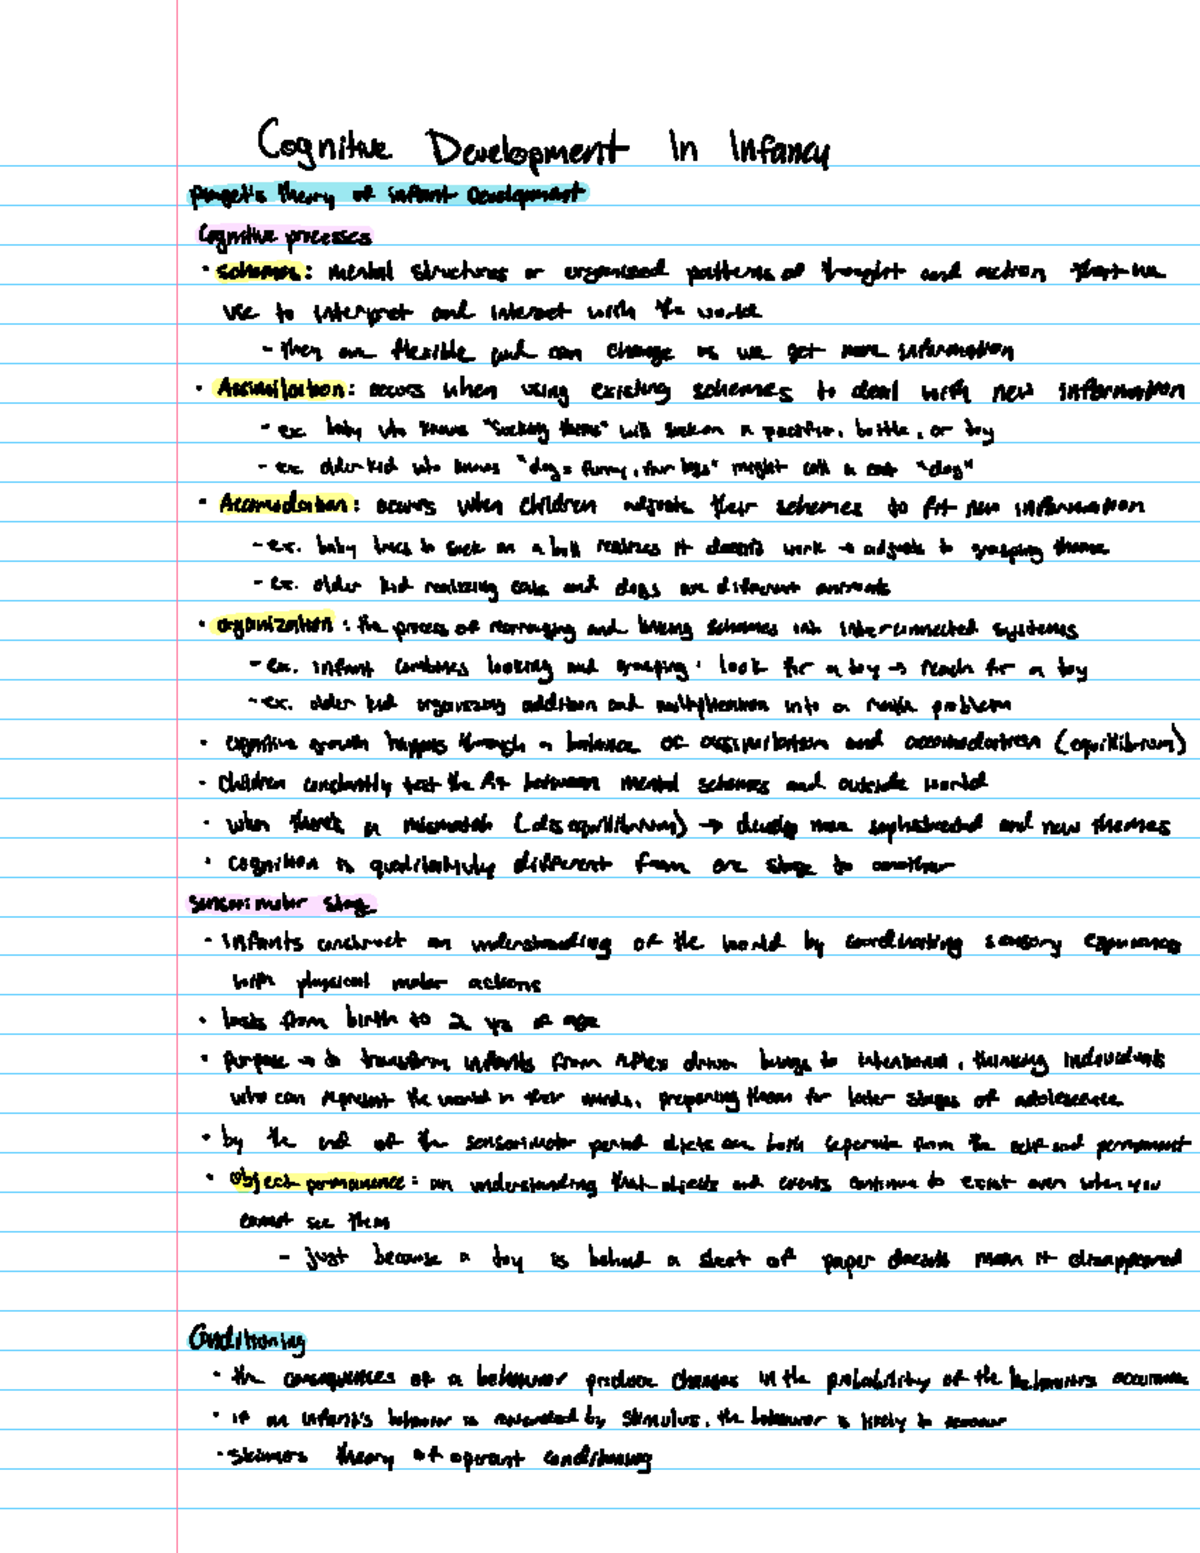 Cognitive Development In Infancy
Piaget's theory of infant Development
Cognitive processes
· schemes: mental structures or organized patterns of thought and action that we
use to interpret and interact with the world
- they are flexible and can change as we get more information
· Assimilation: occurs when using existing schemes to deal with new information
- ex. baby who knows "sucking theme" will suck on a pacifier, bottle, or toy
- ex. older kid who knows "dog = furry, four legs" might call a cat "dog"
· Accomodation: occurs when children adjusts their schemes to fit new information
- ex. baby tries to suck on a ball realizes it doesn't work → adjusts to grasping theme
- ex. older kid realizing cats and dogs are different animals
· organization: the process of rearranging and linking schemes into interconnected systems
- ex. infant combines looking and grasping: look for a toy → reach for a toy
- ex. older kid organizing addition and multiplication into a math problem
· cognitive growth happens through a balance of assimilation and accomodation (equilibrium)
· Children constantly test the fit between mental schemes and outside world
· when there's a mismatch (disequilibrium) → develop more sophisticated and new themes
· cognition is qualitatively different from one stage to another
sensorimotor stage
· infants construct an understanding of the world by coordinating sensory experiences
with physical motor actions
· lasts from birth to 2 yrs of age
· purpose → to transform infants from reflex driven beings to intentional, thinking individuals
who can represent the world in their minds, preparing them for later stages of adolescence
· by the end of the sensorimotor period objects are both seperate from the self and permanent
· object permanence: an understanding that objects and events continue to exist even when you
cannot see them
- just because a toy is behind a sheet of paper doesn't mean it disappeared
Conditioning
· the consequences of a behavior produce changes in the probability of the behaviors occurrence
· if an infant's behavior is rewarded by stimulus, the behavior is likely to reoccur
· Skinners theory of operant conditioning